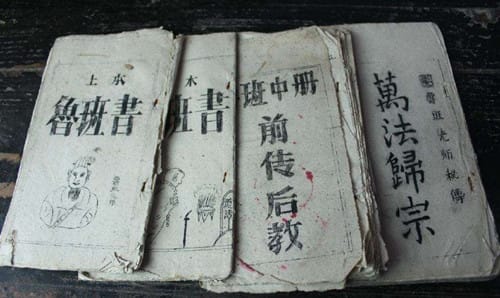 魯班書
木
班書
班中册
前传后教
魯班先师秘傳
萬法歸宗